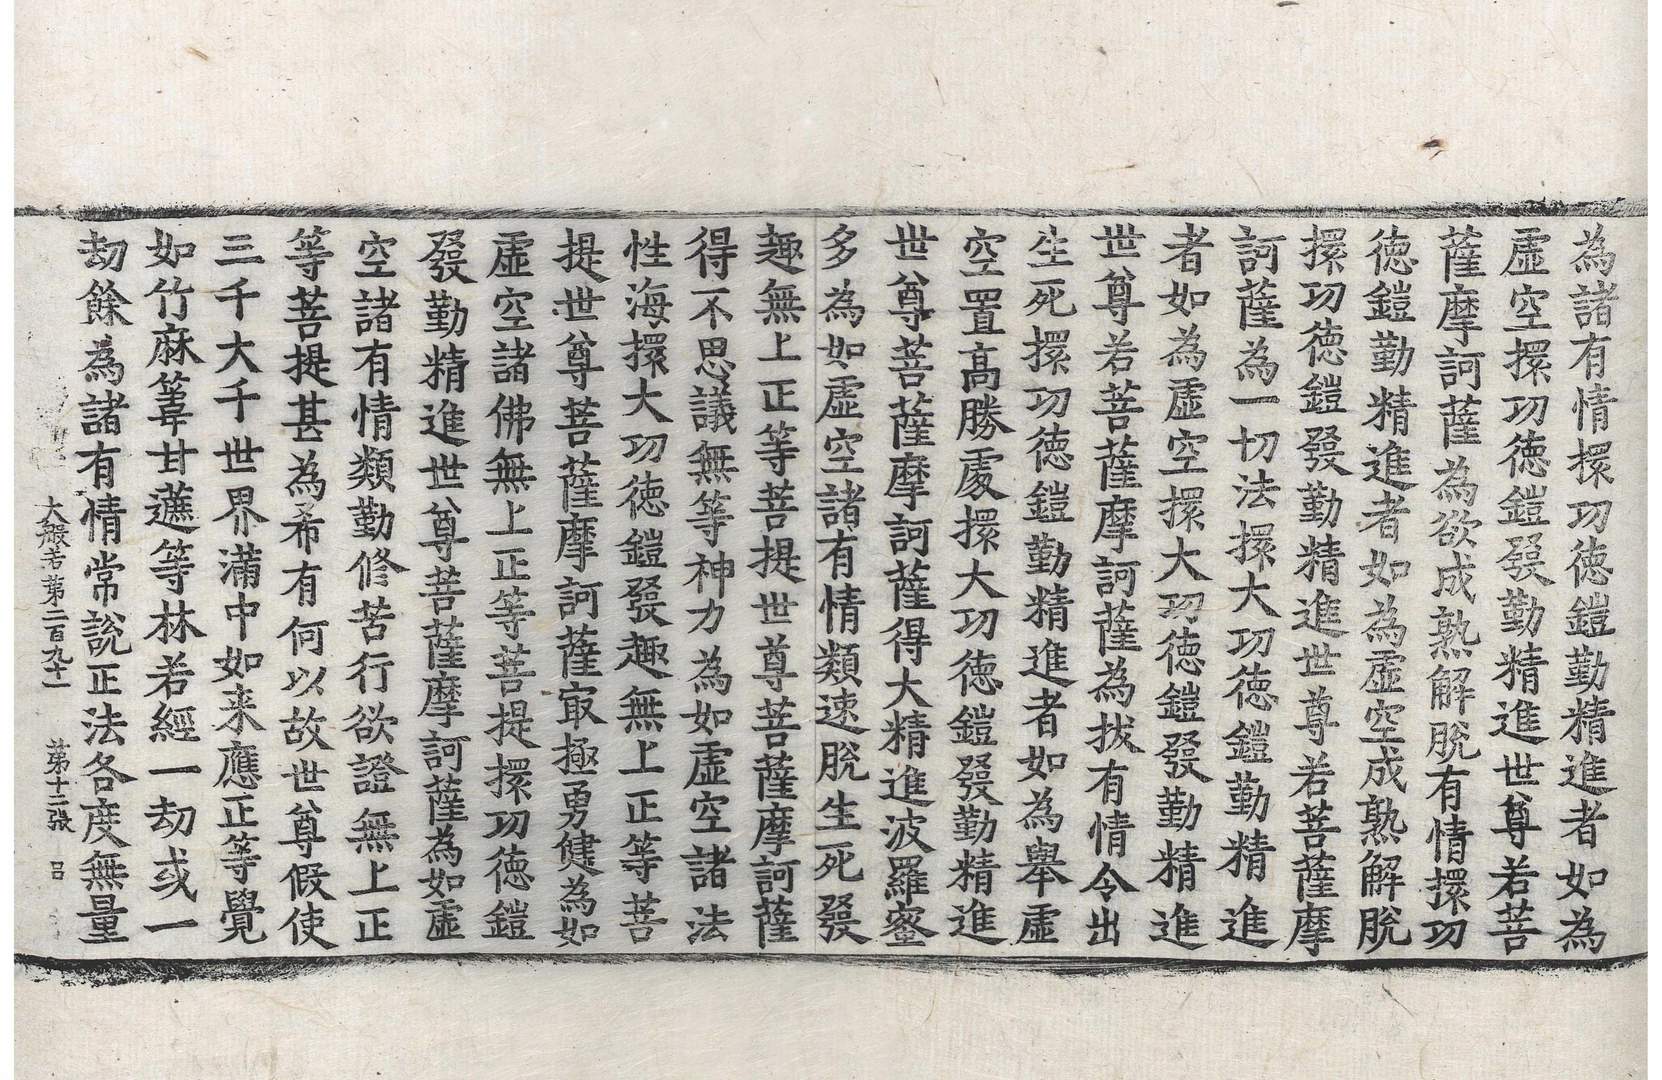 為諸有情擐功徳鎧勤精進者如為
虛空擐功徳鎧發勤精進世尊若菩
薩摩訶薩為欲成熟解脫有情擐功
徳鎧勤精進者如為虛空成熟解脫
擐功徳鎧發勤精進世尊若菩薩摩
訶薩為一切法擐大功徳鎧勤精進
者如為虛空擐大功徳鎧發勤精進
世尊若菩薩摩訶薩為拔有情令出
生死擐功徳鎧勤精進者如為舉虛
空置高勝處擐大功徳鎧發勤精進
世尊菩薩摩訶薩得大精進波羅蜜
多為如虛空諸有情類速脫生死發
趣無上正等菩提世尊菩薩摩訶薩
得不思議無等神力為如虛空諸法
性海擐大功徳鎧發趣無上正等菩
提世尊菩薩摩訶薩㝡極勇健為如
虛空諸佛無上正等菩提擐功徳鎧
發勤精進世尊菩薩摩訶薩為如虛
空諸有情類勤修苦行欲證無上正
等菩提甚為希有何以故世尊假使
三千大千世界滿中如来應正等覺
如竹麻䓁甘蔗等林若經一劫或一
劫餘為諸有情常說正法各度無量
大般若第二百九十一 第十二張 吕